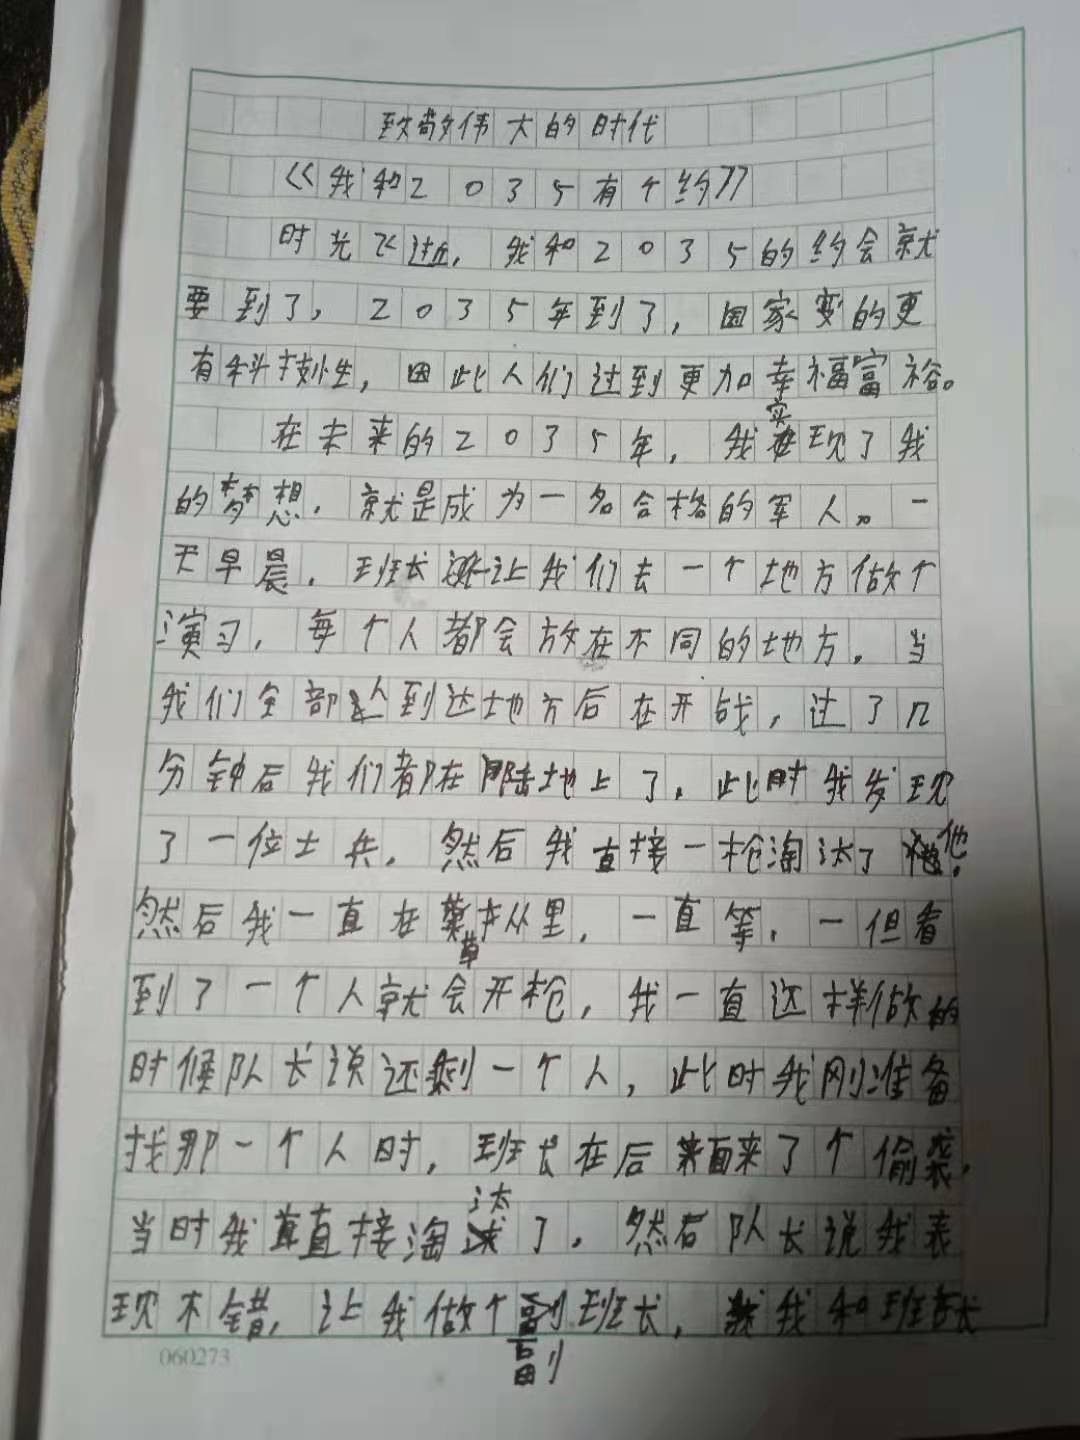 致敬伟大的时代
《我和2035有个约》
时光飞过，我和2035的约会就
要到了，2035年到了，国家变的更
有科技性，因此人们过到更加幸福富裕。
在未来的2035年，我实现了我
的梦想，就是成为一名合格的军人。一
天早晨，班长让我们去一个地方做个
演习，每个人都会放在不同的地方，当
我们全部人到达地方后在开战，过了几
分钟后我们都在陆地上了，此时我发现
了一位士兵，然后我直接一枪淘汰了他，
然后我一直在草丛里，一直等，一但看
到了一个人就会开枪，我一直这样做的
时候队长说还剩一个人，此时我刚准备
找那一个人时，班长在后面来了个偷袭，
当时我直接淘汰了，然后队长说我表
现不错，让我做个副班长，我和班长
060273